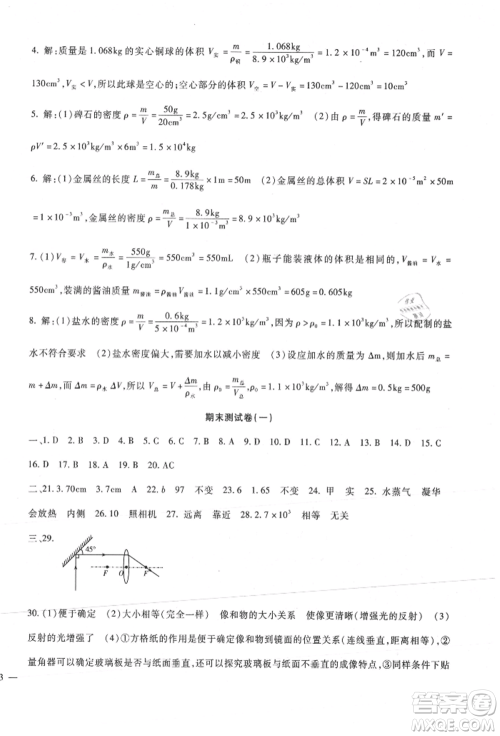 4. 解:质量是 1.068kg 的实心铜球的体积 V实 = m/ρ铜 = 1.068kg/8.9×10³kg/m³ = 1.2×10⁻⁴m³ = 120cm³ V =
130cm³, V实 < V, 所以此球是空心的; 空心部分的体积 V空 = V − V实 = 130cm³ − 120cm³ = 10cm³
5. 解:(1)碎石的密度 ρ = m/V = 50g/20cm³ = 2.5g/cm³ = 2.5×10³kg/m³ (2)由 ρ = m/V, 得碎石的质量 m′ =
ρV′ = 2.5×10³kg/m³ ×
6. 解:(1)金属丝的长度 L = m总/m = 8.9kg/0.178kg ×1m = 50m (2)金属丝的总体积 V = SL = 2×10⁻⁵m² × 50m
= 1×10⁻³m³, 金属丝的密度 ρ = m总/V = 8.9kg/1×10⁻³m³ = 8.9×10³kg/m³
7. (1) V瓶 = V水 = m水/ρ水 = 550g/1g/cm³ = 550cm³ = 550mL (2)瓶子能装液体的体积是相同的, V酱油 = V水 =
550cm³, 装满的酱油质量 m酱油 = ρ酱油V酱油 = 1.1g/cm³ × 550cm³ = 605g > 600g
8. 解:(1)盐水的密度 ρ = m/V = 0.6kg/5×10⁻⁴m³ = 1.2×10³kg/m³, 因为 ρ > ρ₀ = 1.1×10³kg/m³, 所以配制的盐
水不符合要求 (2)盐水密度偏大, 需要加水以减小密度 (3)设应加水的质量为 Δm, 加水后, m总 =
m + Δm, V总 = V + Δm/ρ水, ρ₀ = m总/V总, 即 m + Δm = ρ₀(V + Δm/ρ水), 代入数据解得 Δm = 0.5kg = 500g
期末测试卷(一)
一、1. D 2. B 3. D 4. B 5. D 6. D 7. C 8. C 9. D 10. C 11. C 12. D 13. A 14. D 15. C
16. D 17. D 18. B 19. D 20. C
二、21. 3.70cm 4.3s 22. 响度 音色 A 23. 等于 97 不变 不变 24. 甲 实 25. 水蒸气 凝华
会放热 内侧 26. 10 照相机 27. 远离 靠近 28. 2.7×10³ 相等 无关
三、29.
45°
F O F
30. (1)便于确定 (2)大小相等(完全一样) 像和物的大小关系 像更清晰(增强光的反射) (3)
反射的光增强了 (4)①方格纸的作用是便于研究像和物到镜面的位置关系(连线垂直,距离相等), ②
量角器可以确定玻璃板是否与纸面垂直,还可以探究玻璃板与纸面垂直的成像特点;③同样条件下贴
3